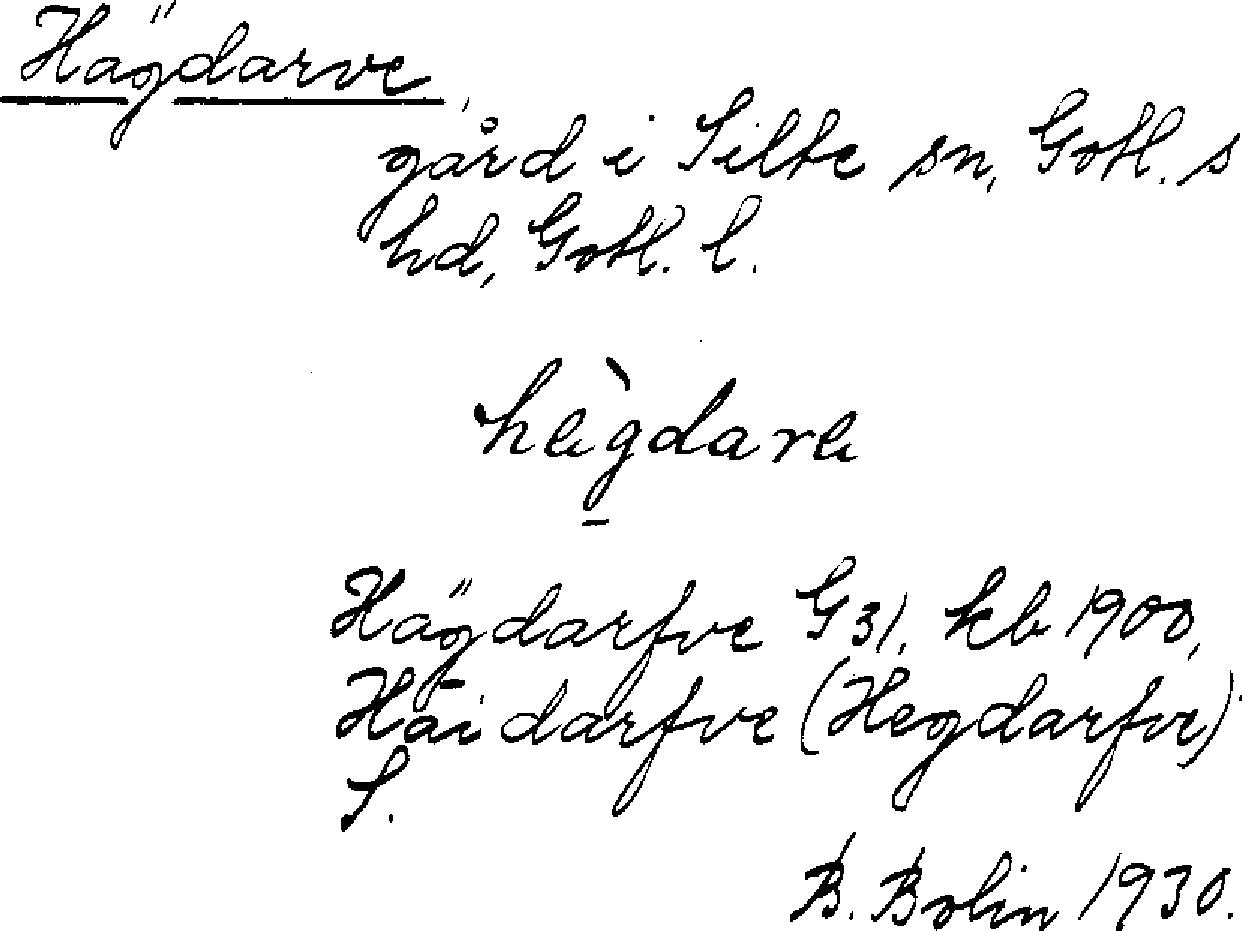 Hägdarve
gård i Silte sn, Gotl. s
hd, Gotl. l.
hègdare
Hägdarfve G 31, kb 1900,
Häidarfve (Hegdarfve)
S.
B. Bolin 1930.